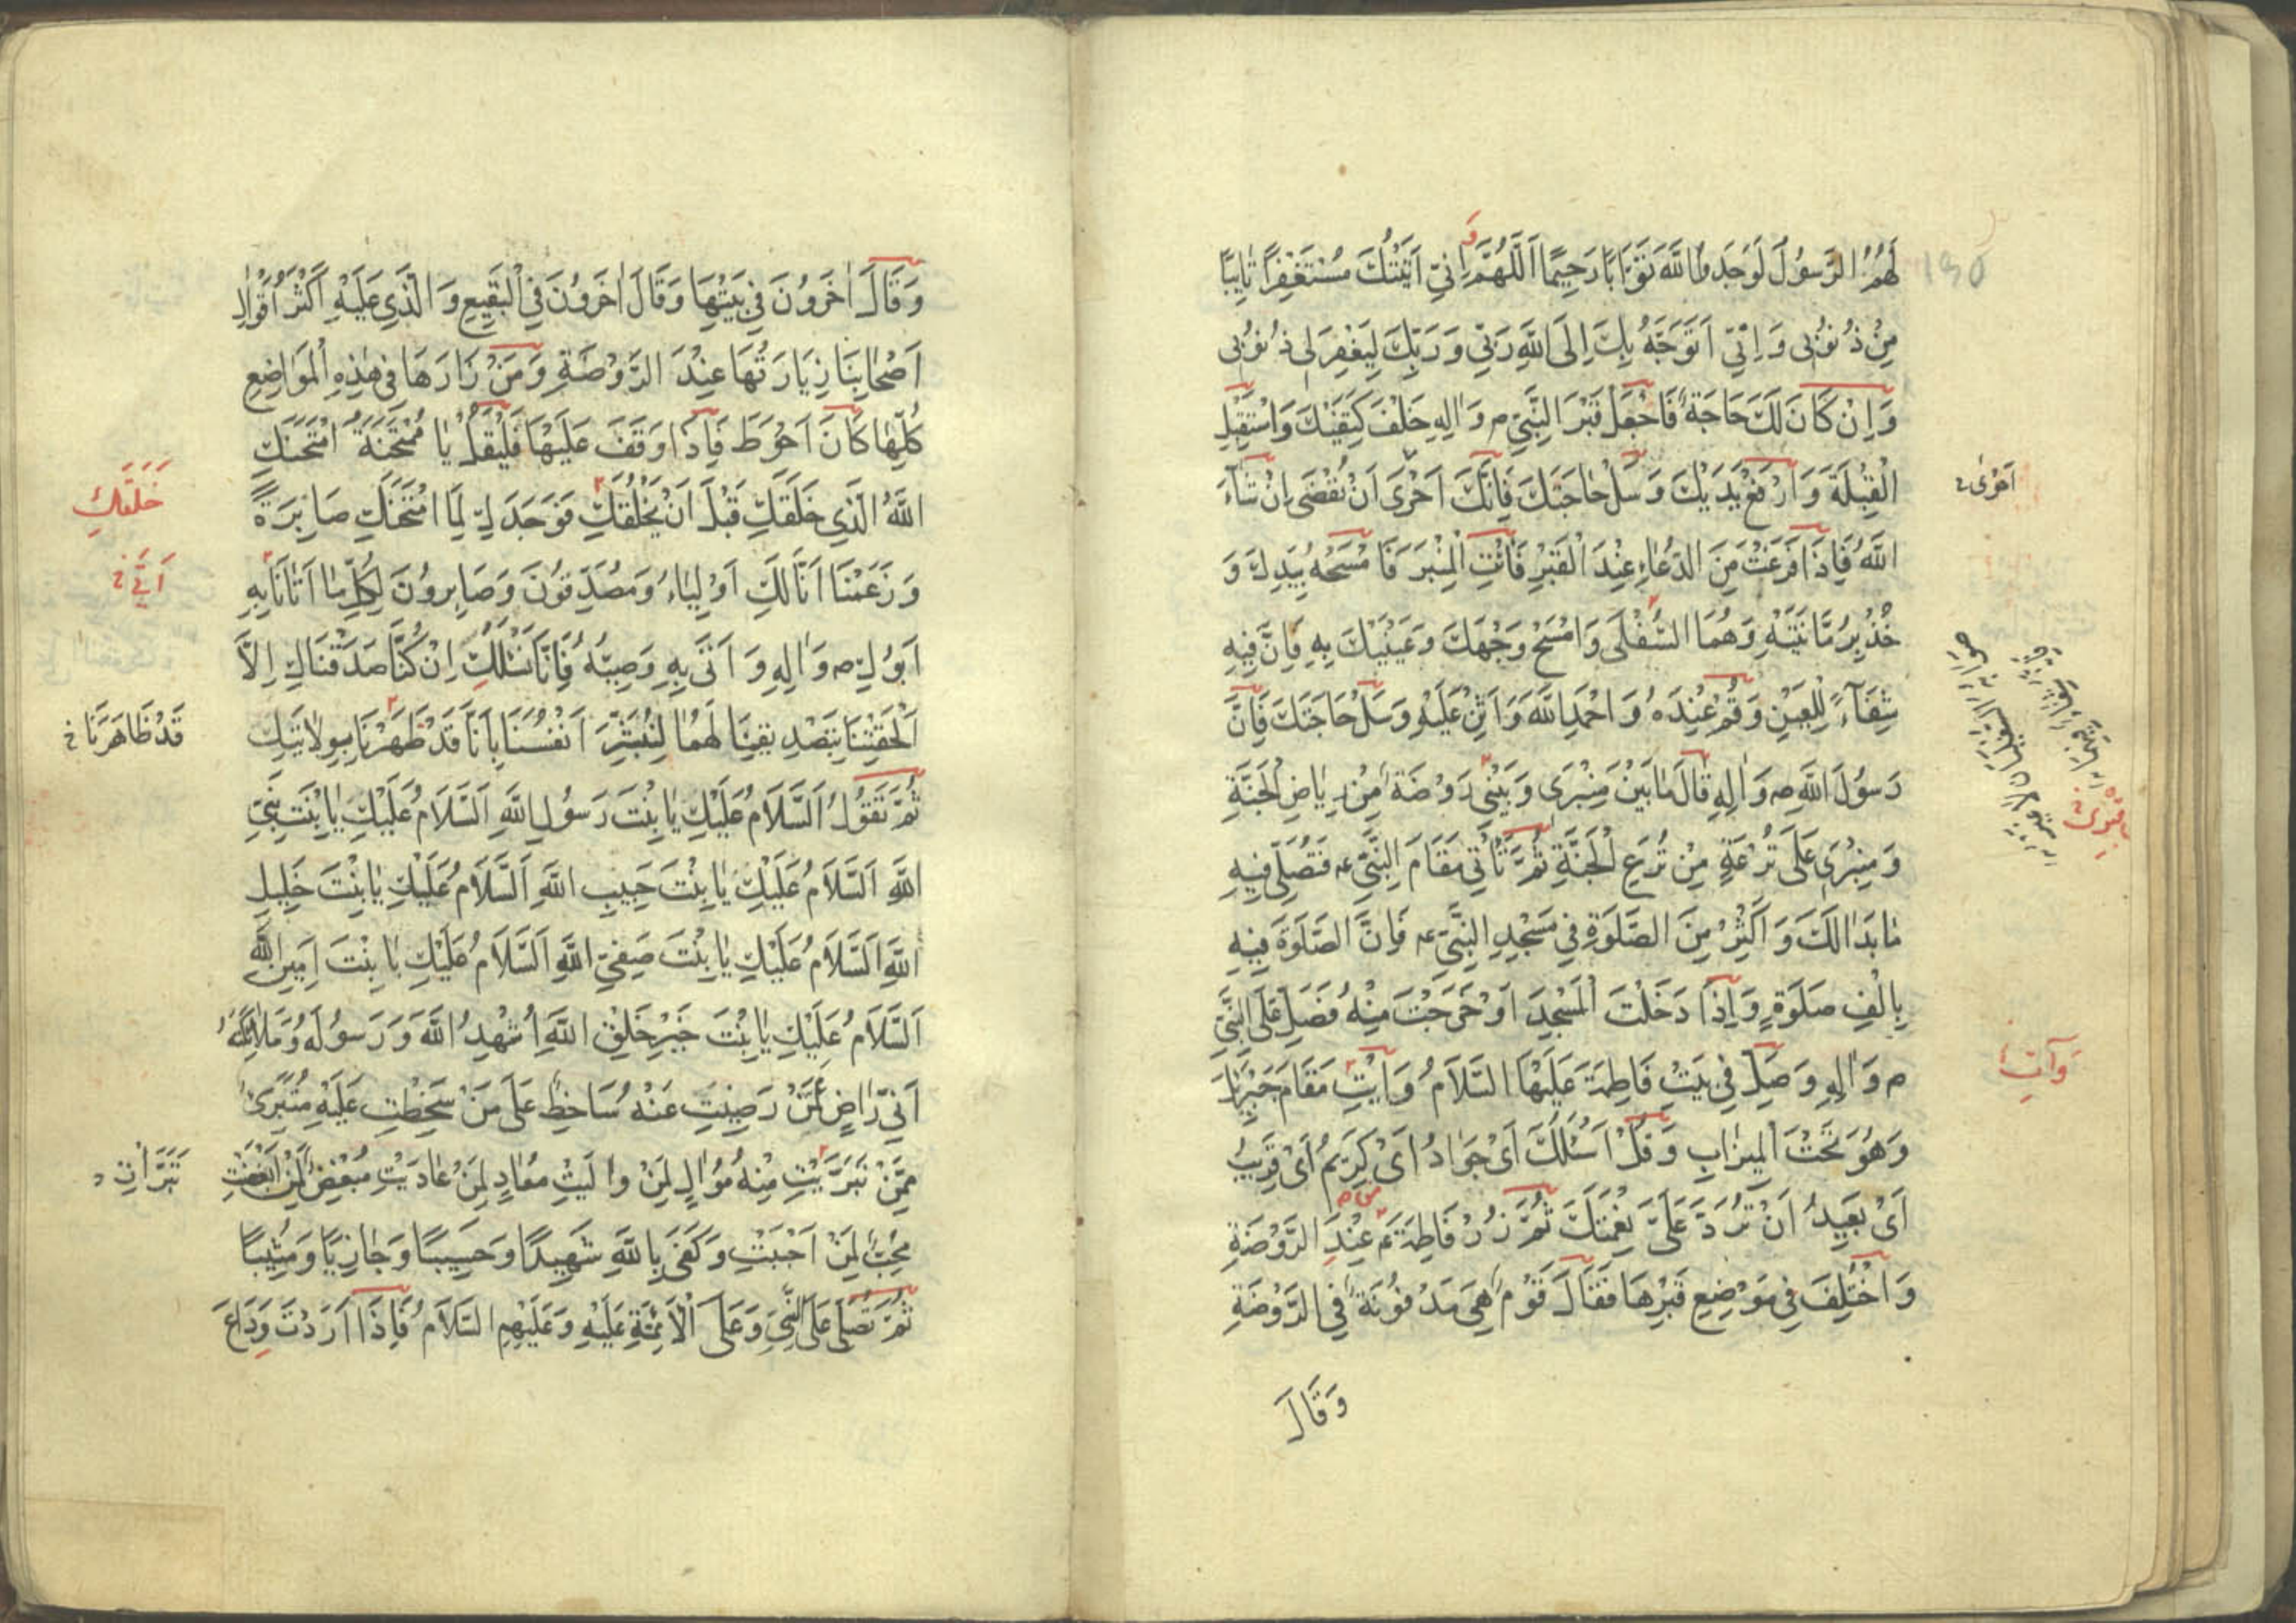 لَهُمُ الرَّسُولُ لَوَجَدُوا اللَّهَ تَوَّابًا رَحِيمًا اَللَّهُمَّ وَ اِنِّي اَتَيْتُكَ مُسْتَغْفِرًا تَائِبًا
مِنْ ذُنُوبِي وَ اِنِّي اَتَوَجَّهُ بِكَ اِلَى اللَّهِ رَبِّي وَ رَبِّكَ لِيَغْفِرَ لِي ذُنُوبِي
وَ اِنْ كَانَ لَكَ حَاجَةٌ فَاجْعَلْ قَبْرَ النَّبِيِّ ص وَ اٰلِهِ خَلْفَ كَتِفَيْكَ وَ اسْتَقْبِلِ
الْقِبْلَةَ وَ ارْفَعْ يَدَيْكَ وَ سَلْ حَاجَتَكَ فَاِنَّكَ اَحْرَى اَنْ تُقْضَى اِنْ شَآءَ
اَحْرٰى خ
اللَّهُ فَاِذَا فَرَغْتَ مِنَ الدُّعَاءِ عِنْدَ الْقَبْرِ فَائْتِ الْمِنْبَرَ فَامْسَحْهُ بِيَدِكَ وَ
خُذْ بِرُمَّانَتَيْهِ وَ هُمَا السُّفْلَى وَ امْسَحْ وَجْهَكَ وَ عَيْنَيْكَ بِهِ فَاِنَّ فِيهِ
شِفَآءً لِلْعَيْنِ وَ قُمْ عِنْدَهُ وَ احْمَدِ اللَّهَ وَ اَثْنِ عَلَيْهِ وَ سَلْ حَاجَتَكَ فَاِنَّ
رَسُولَ اللَّهِ ص وَ اٰلِهِ قَالَ مَا بَيْنَ مِنْبَرِي وَ بَيْتِي رَوْضَةٌ مِنْ رِيَاضِ الْجَنَّةِ
وَ مِنْبَرِي عَلَى تُرْعَةٍ مِنْ تُرَعِ الْجَنَّةِ ثُمَّ تَأْتِي مَقَامَ النَّبِيِّ ع فَتُصَلِّي فِيهِ
مَا بَدَا لَكَ وَ اَكْثِرْ مِنَ الصَّلَوةِ فِي مَسْجِدِ النَّبِيِّ ع فَاِنَّ الصَّلَوةَ فِيهِ
بِاَلْفِ صَلَوةٍ وَ اِذَا دَخَلْتَ الْمَسْجِدَ اَوْ خَرَجْتَ مِنْهُ فَصَلِّ عَلَى النَّبِيِّ
ص وَ اٰلِهِ وَ صَلِّ فِي بَيْتِ فَاطِمَةَ عَلَيْهَا السَّلَامُ وَ اَيْتِ مَقَامَ جَبْرَئِيلَ
وَ آتِ
وَ هُوَ تَحْتَ الْمِيزَابِ وَ قُلْ اَسْئَلُكَ اَيْ جَوَادُ اَيْ كَرِيمُ اَيْ قَرِيبُ
اَيْ بَعِيدُ اَنْ تَرُدَّ عَلَيَّ نِعْمَتَكَ ثُمَّ زُرْ فَاطِمَةَ ع عِنْدَ الرَّوْضَةِ
وَ اخْتُلِفَ فِي مَوْضِعِ قَبْرِهَا فَقَالَ قَوْمٌ هِيَ مَدْفُونَةٌ فِي الرَّوْضَةِ
وَ قَالَ
وَ قَالَ اٰخَرُونَ فِي بَيْتِهَا وَ قَالَ اٰخَرُونَ فِي الْبَقِيعِ وَ الَّذِي عَلَيْهِ اَكْثَرُ اَقْوَالِ
اَصْحَابِنَا زِيَارَتُهَا عِنْدَ الرَّوْضَةِ وَ مَنْ زَارَهَا فِي هٰذِهِ الْمَوَاضِعِ
كُلِّهَا كَانَ اَحْوَطَ فَاِذَا وَقَفَ عَلَيْهَا فَلْيَقُلْ يَا مُمْتَحَنَةُ امْتَحَنَكِ
اللَّهُ الَّذِي خَلَقَكِ قَبْلَ اَنْ يَخْلُقَكِ فَوَجَدَكِ لِمَا امْتَحَنَكِ صَابِرَةً
خَلَقَكِ
وَ زَعَمْنَا اَنَّا لَكِ اَوْلِيَاءُ وَ مُصَدِّقُونَ وَ صَابِرُونَ لِكُلِّ مَا اَتَانَا بِهِ
اَتٰى خ
اَبُوكِ ص وَ اٰلِهِ وَ اَتَى بِهِ وَصِيُّهُ فَاِنَّا نَسْئَلُكِ اِنْ كُنَّا صَدَّقْنَاكِ اِلَّا
اَلْحَقْتِنَا بِتَصْدِيقِنَا لَهُمَا لِنُبَشِّرَ اَنْفُسَنَا بِاَنَّا قَدْ طَهُرْنَا بِوِلَايَتِكِ
قَدْ ظَاهَرْنَا خ
ثُمَّ تَقُولُ اَلسَّلَامُ عَلَيْكِ يَا بِنْتَ رَسُولِ اللَّهِ اَلسَّلَامُ عَلَيْكِ يَا بِنْتَ نَبِيِّ
اللَّهِ اَلسَّلَامُ عَلَيْكِ يَا بِنْتَ حَبِيبِ اللَّهِ اَلسَّلَامُ عَلَيْكِ يَا بِنْتَ خَلِيلِ
اللَّهِ اَلسَّلَامُ عَلَيْكِ يَا بِنْتَ صَفِيِّ اللَّهِ اَلسَّلَامُ عَلَيْكِ يَا بِنْتَ اَمِينِ اللَّهِ
اَلسَّلَامُ عَلَيْكِ يَا بِنْتَ خَيْرِ خَلْقِ اللَّهِ اُشْهِدُ اللَّهَ وَ رَسُولَهُ وَ مَلَائِكَتَهُ
اَنِّي رَاضٍ عَمَّنْ رَضِيتِ عَنْهُ سَاخِطٌ عَلَى مَنْ سَخِطْتِ عَلَيْهِ مُتَبَرِّئٌ
مِمَّنْ تَبَرَّيْتِ مِنْهُ مُوَالٍ لِمَنْ وَالَيْتِ مُعَادٍ لِمَنْ عَادَيْتِ مُبْغِضٌ لِمَنْ اَبْغَضْتِ
تَبَرَّاْتِ
مُحِبٌّ لِمَنْ اَحْبَبْتِ وَ كَفَى بِاللَّهِ شَهِيدًا وَ حَسِيبًا وَ جَازِيًا وَ مُثِيبًا
ثُمَّ تُصَلِّي عَلَى النَّبِيِّ وَ عَلَى الْاَئِمَّةِ عَلَيْهِ وَ عَلَيْهِمِ السَّلَامُ فَاِذَا اَرَدْتَ وَدَاعَ